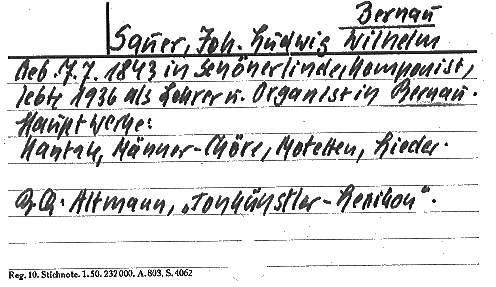 Bernau
Sauer, Joh. Ludwig Wilhelm
Geb. 7. 7. 1843 in Schönerlinde, Komponist,
lebte 1936 als Lehrer u. Organist in Bernau.
Hauptwerke:
Kantah, Männer-Chöre, Motetten, Lieder.
B.Q.: Altmann, „Tonkünstler-Lexikon".
Reg. 10. Stichnote. 1. 50. 232000. A. 803. S. 4062